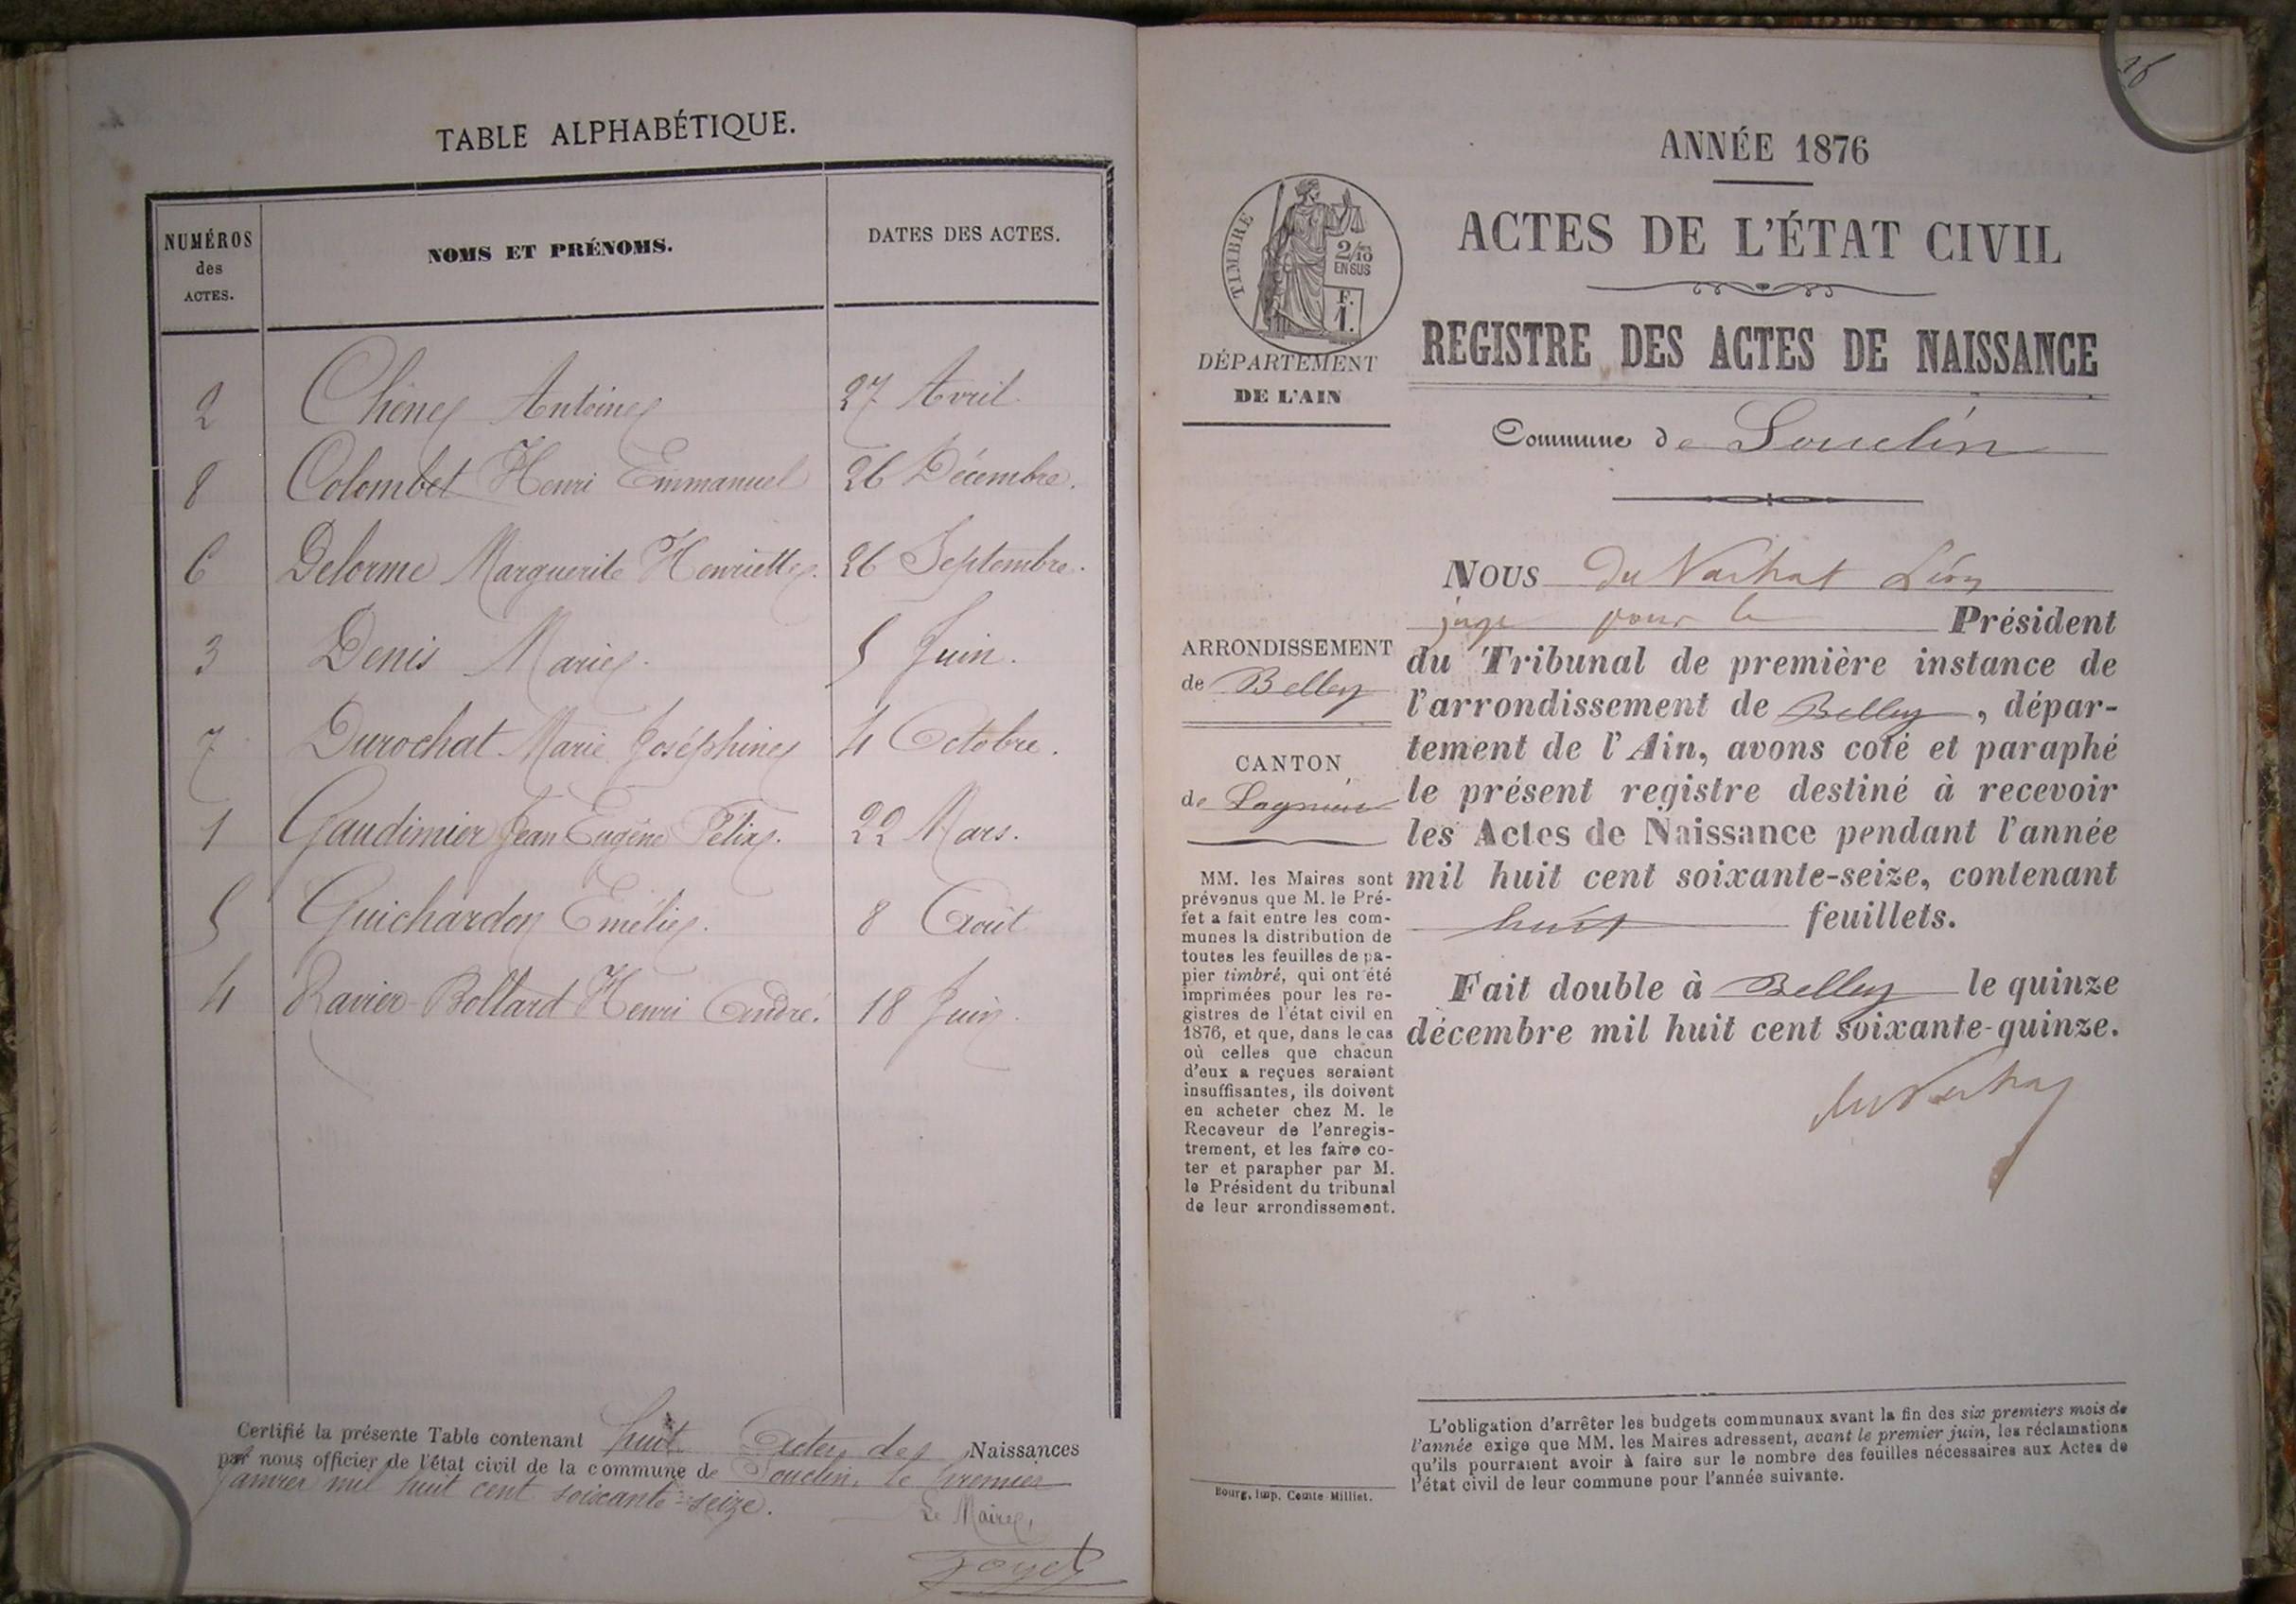 TABLE ALPHABÉTIQUE.
NUMÉROS
des
ACTES.
NOMS ET PRÉNOMS.
DATES DES ACTES.
2 Chêne Antoine 27 Avril.
8 Colombet Henri Emmanuel 26 Décembre.
6 Delorme Marguerite Henriette. 26 Septembre.
3 Denis Marie. 5 Juin.
7 Durochat Marie Joséphine 4 Octobre.
1 Gaudimier Jean Eugène Félix. 22 Mars.
5 Guichardon Emélie. 8 Août
4 Ravier-Bollard Henri André. 18 Juin.
Certifié la présente Table contenant huit Actes des Naissances
par nous officier de l'état civil de la commune de Souclin, le premier
Janvier mil huit cent soixante-seize.
Le Maire,
ANNÉE 1876
TIMBRE
2/10
EN SUS
F.
1.
ACTES DE L'ÉTAT CIVIL
REGISTRE DES ACTES DE NAISSANCE
DÉPARTEMENT
DE L'AIN
Commune de Souclin
Nous du Vachat Léon
juge pour le Président
du Tribunal de première instance de
l'arrondissement de Belley, dépar-
tement de l'Ain, avons coté et paraphé
le présent registre destiné à recevoir
les Actes de Naissance pendant l'année
mil huit cent soixante-seize, contenant
huit feuillets.
Fait double à Belley le quinze
décembre mil huit cent soixante-quinze.
du Vachat
ARRONDISSEMENT
de Belley
CANTON
de Lagnieu
MM. les Maires sont
prévenus que M. le Pré-
fet a fait entre les com-
munes la distribution de
toutes les feuilles de pa-
pier timbré, qui ont été
imprimées pour les re-
gistres de l'état civil en
1876, et que, dans le cas
où celles que chacun
d'eux a reçues seraient
insuffisantes, ils doivent
en acheter chez M. le
Receveur de l'enregis-
trement, et les faire co-
ter et parapher par M.
le Président du tribunal
de leur arrondissement.
Bourg, imp. Comte-Milliet.
L'obligation d'arrêter les budgets communaux avant la fin des six premiers mois de
l'année exige que MM. les Maires adressent, avant le premier juin, les réclamations
qu'ils pourraient avoir à faire sur le nombre des feuilles nécessaires aux Actes de
l'état civil de leur commune pour l'année suivante.